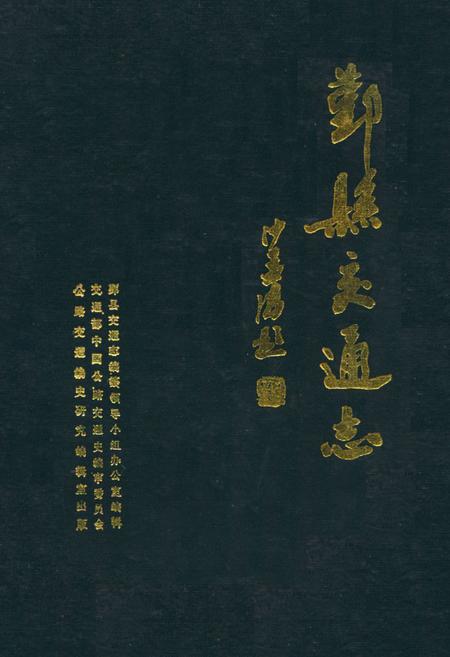 鄞縣交通志
沙孟海题
鄞县交通志编审领导小组办公室编辑
交通部中国公路交通史编审委员会
公路交通编史研究编辑室出版